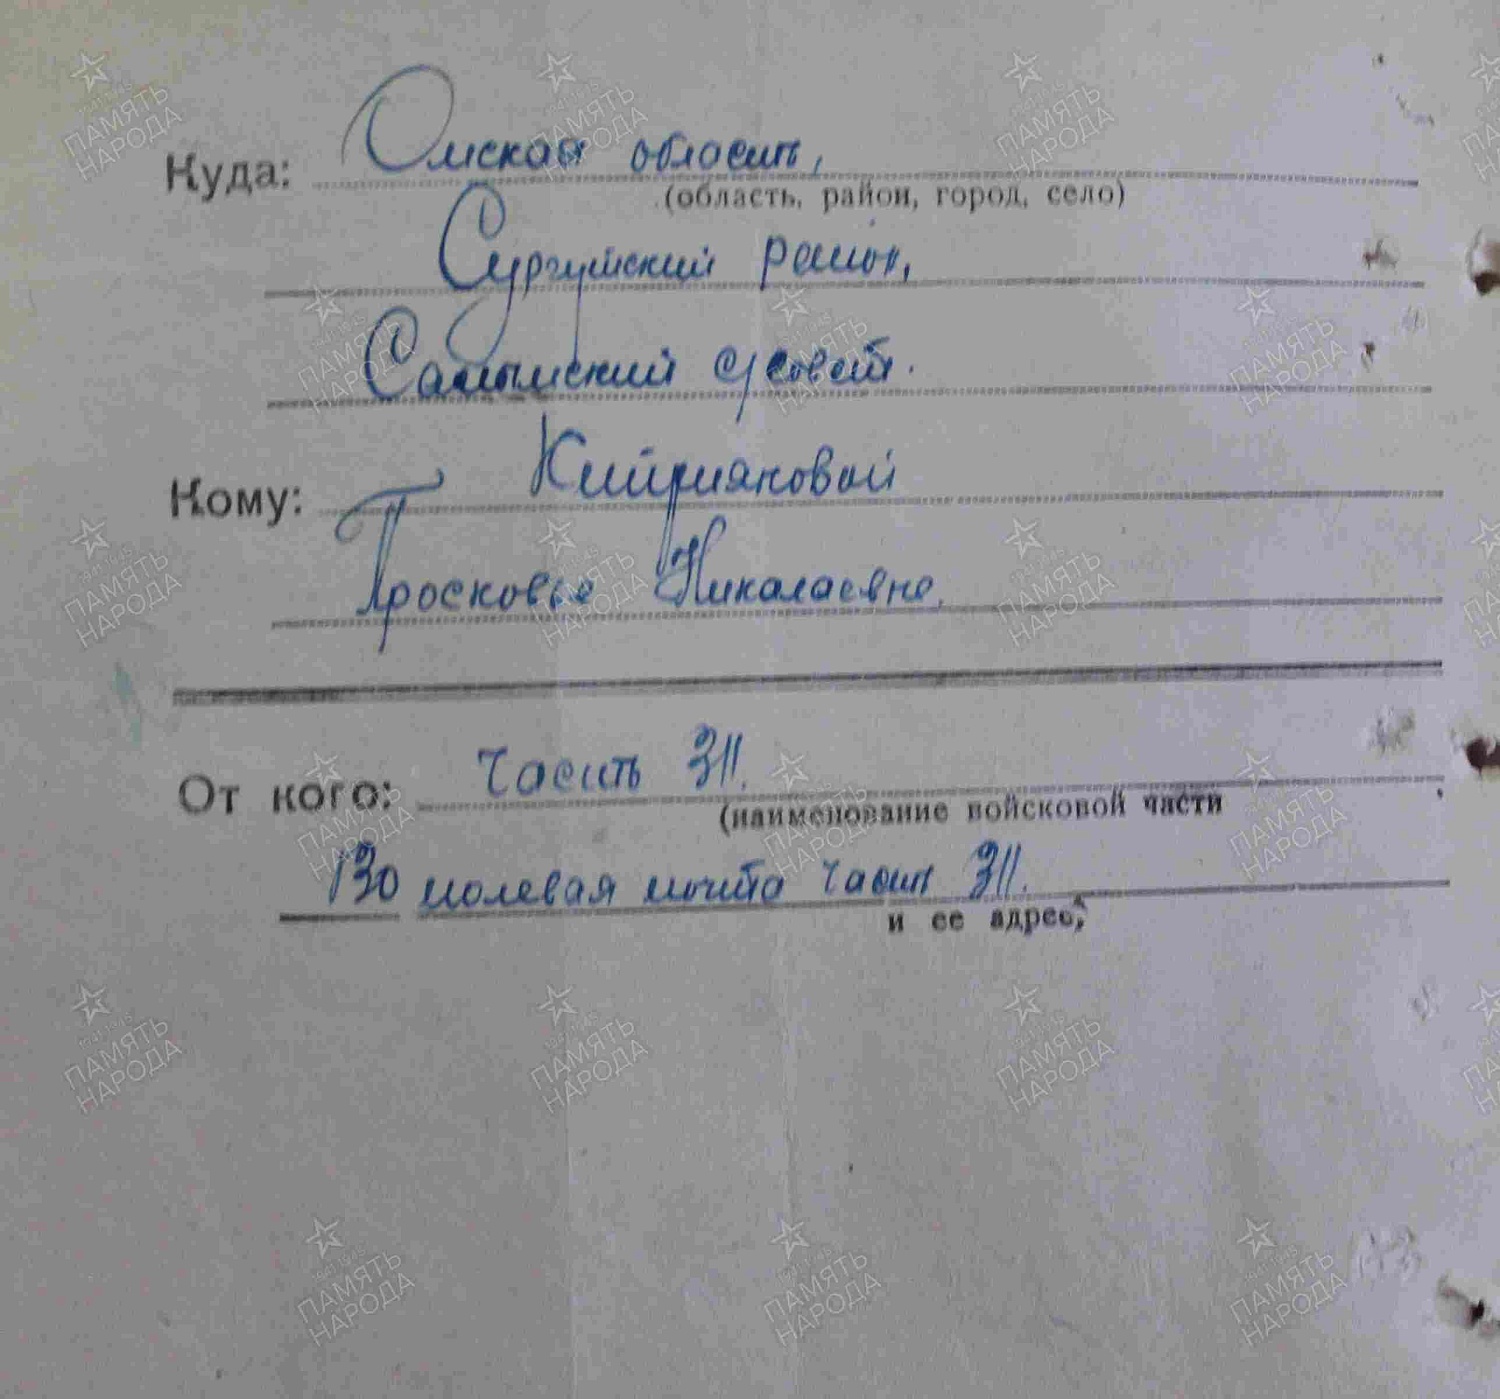 Куда: Омская область,
(область, район, город, село)
Сургутский район,
Салымский с/совет.
Кому: Киприяновой
Просковье Николаевне.
От кого: Часть 311.
(наименование войсковой части
130 полевая почта часть 311.
и ее адрес)